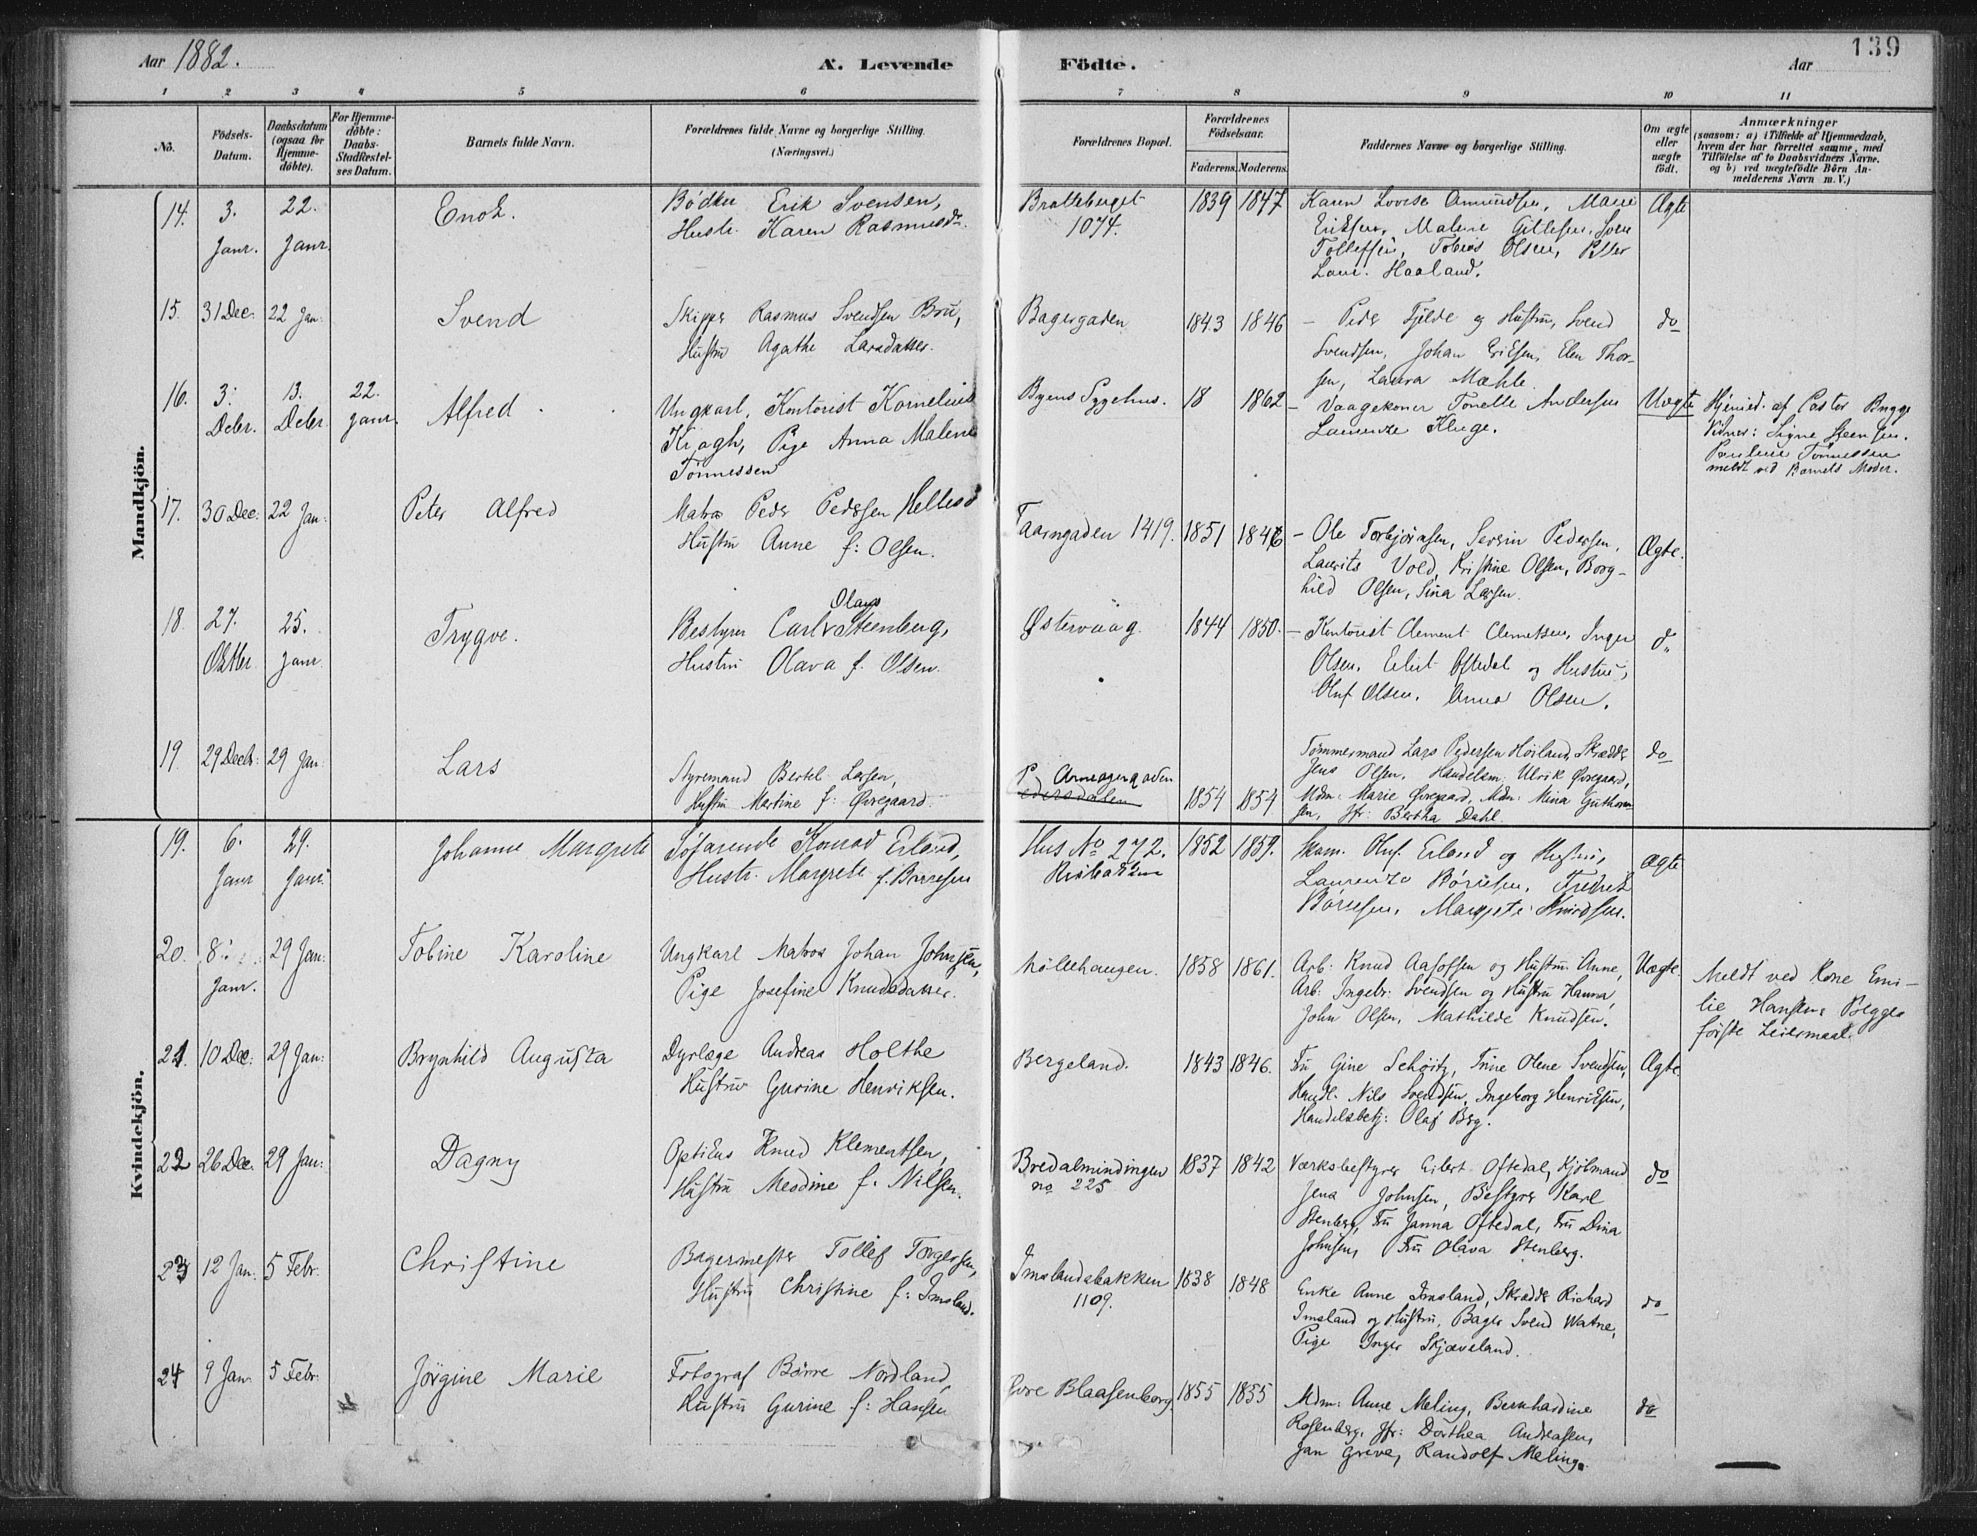 Aar 1882.
A. Levende Födte.
139
Aar
1 2 3 4 5 6 7 8 9 10 11
No. Födsels-Datum. Daabsdatum (ogsaa for Hjemmedöbte). For Hjemmedöbte: Daabs-Stadfæstelses Datum. Barnets fulde Navn. Forældrenes fulde Navne og borgerlige Stilling. (Næringsvei.) Forældrenes Bopæl. Forældrenes Födselsaar. Faderens. Moderens. Faddernes Navne og borgerlige Stilling. Om ægte eller uægte födt. Anmærkninger (saasom: a) i Tilfælde af Hjemmedaab, hvem der har forrettet samme, med Tilföielse af to Daabsvidners Navne. og b) ved uægtefödte Börn Anmelderens Navn m. V.)
Mandkjön.
14. 3. Janr. 22. Janr. Enok. Bödker Erik Svensen, Brattebuget 1839 1847 Karen Lovise Amundsen, Marie Ægte
Hustr. Karen Rasmusdt. 1074. Eriksen, Malene Gitlesen, Sven
Tollefsen, Tobias Olsen, Peter
Laur. Haaland.
15. 31 Dec. 22 Jan. Svend Skipper Rasmus Svendsen Bru, Bagergaden 1843 1846 – Peder Fjelde og Hustru, Svend do
Hustru Agathe Larsdatter. Svendsen, Johan Eriksen, Elen Thor-
sen, Laura Mæhle.
16. 3. Debr. 13. Debr. 22. Janr. Alfred Ungkarl, Kontorist Kornelius Byens Sygehus. 18 1862 – Vaagekoner Tonette Andersen Uægte Hjemed. af Pastor Brygge
Kragh, Pige Anna Malene Laurentze Kluge. Vidner: Signe Steensen.
Tönnessen Pauline Tönnessen
meldt ved Barnets Moder.
17. 30 Dec. 22 Jan. Peter Alfred Matros Peder Pedersen Hellesö Taarngaden 1419. 1851 1846 – Ole Torbjörnsen, Sersin Pedersen, Ægte.
Hustru Anne f: Olsen. Laurits Vold, Kristine Olsen, Borg-
hild Olsen, Sina Larsen.
18. 27. Oktbr. 25. Janr. Trygve. Bestyrer Carl Olaus Steenberg, Østervaag. 1844 1850. – Kontorist Clement Clemetsen, Inger do
Hustru Olava f. Olsen. Olsen, Eilert Oftedal og Hustru,
Oluf Olsen, Anna Olsen.
19. 29 Decb. 29 Jan. Lars Styrmand Bertel Larsen, Arneagergaden 1854 1854. Tömmermand Lars Pedersen Hörland, Skrædder do
Hustru Martine f: Øvregaard. Pedersdalen Jens Olsen, Handelsm. Ulrik Øvregaard,
Mdm. Marie Øvregaard, Mdm: Mina Guthorm-
sen, Jfr: Bertha Dahl.
Kvindekjön.
19. 6. Janr 29. Janr. Johanne Margrete Söfarende Konrad Eiland, Hus No 272. 1852 1859. Skom. Oluf Eiland og Hustru, Ægte
Hustr. Margrete f. Börresen Laurentze Börresen, Fredrik
Börresen, Margrete Knudsen.
20. 8. Janr. 29 Jan. Tobine Karoline Ungkarl Matros Johan Johnsen, Möllehaugen. 1858 1861. Arb: Knud Aasofsen og Hustru Anne, Uægte. Meldt ved Kone Emi-
Pige Josefine Knudsdatter. Arb: Ingebr. Svendsen og Hustru Hanna, lie Hansen, Begges
John Olsen, Mathilde Knudsen. förste Leiermaal.
21. 10 Dec. 29 Jan: Brynhild Augusta Dyrlæge Andreas Holthe Bergeland. 1843 1846. Fru Gine Schöitz, Trine Olene Svendsen, Ægte.
Hustru Gurine Henriksen. Handl. Nils Svendsen, Ingeborg Henriksen,
Handelsbetj: Olaf Berg.
22 26 Dec. 29 Jan: Dagny Optikus Knud Klementsen, Bredalmindingen 1837 1842 Værksbestyrer Eilert Oftedal, Kjöbmand do
Hustru Mesdine f. Nilsen. no 225 Jens Johnsen, Bestyrer Karl
Stenberg, Fru Janna Oftedal, Fru Dina
Johnsen, Fru Olava Stenberg.
23 12 Jan. 5 Febr. Christine Bagermester Tollef Torgersen, Imslandsbakken 1838 1848 Enke Anne Imsland, Skrædder Richard do
Hustru Christine f: Imsland. 1109. Imsland og Hustru, Bager Svend Watne,
Pige Inger Skjæveland.
24 9 Jan. 5 Febr. Jörgine Marie Fotograf Börre Nordland, Övre Blaasenborg. 1855 1855 Mdm: Anne Meling, Bernhardine do
Hustru Gurine f: Hansen Rosenberg, Jfr: Dorthea Andreasen,
Jan Greve, Randolf Meling.